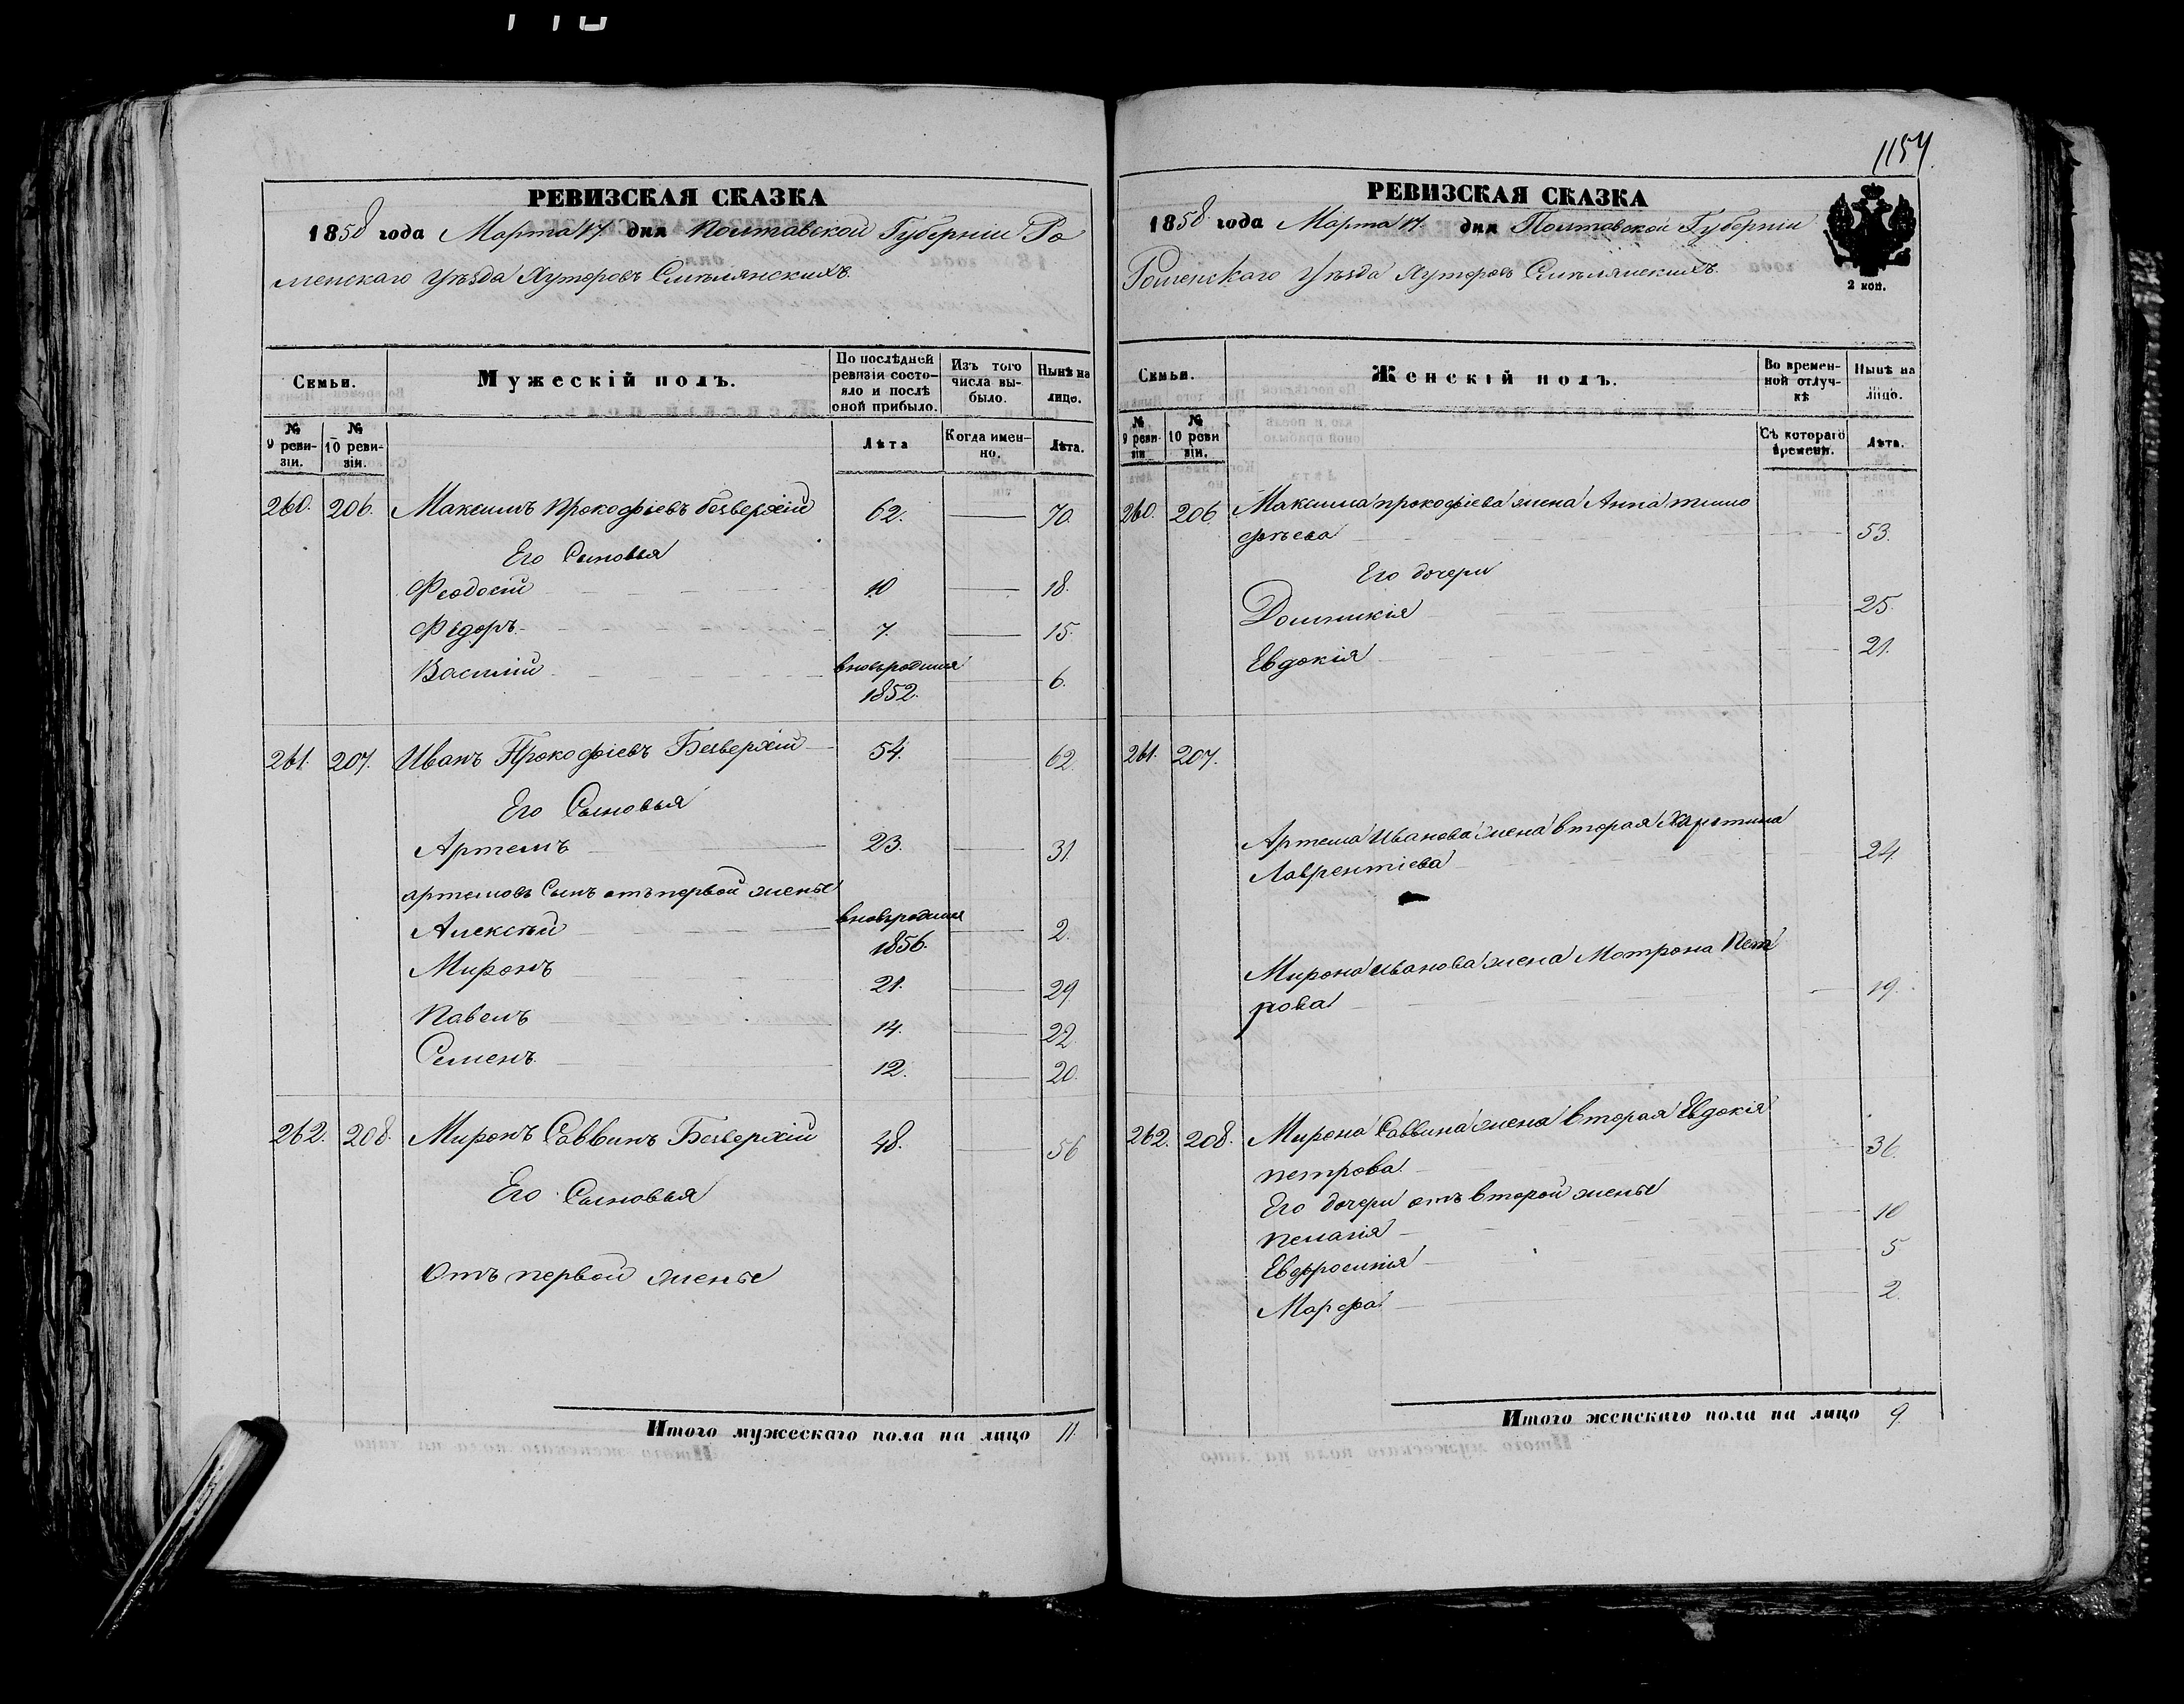 1154.
РЕВИЗСКАЯ СКАЗКА
1858 года Марта 17. дня Полтавской Губерніи Ро
менскаго Уѣзда Хуторовъ Смѣлянскихъ.
Семьи.
Мужескій полъ.
По послѣдней ревизіи состояло и послѣ оной прибыло.
Изъ того числа выбыло.
Нынѣ на лицо.
№ 9 ревизіи.
№ 10 ревизіи.
Лѣта
Когда именно.
Лѣта.
260. 206. Максимъ Прокофіевъ Безверхій 62. 70.
Его Сыновья
Феодосій 10 18.
Федоръ 7. 15.
Василій вновьродился 1852. 6.
261. 207. Иванъ Прокофіевъ Безверхій 54. 62.
Его Сыновья
Артемъ 23. 31.
артемовъ Сынъ отъ первой жены
Алексѣй вновьродился 1856. 2.
Миронъ 21. 29
Павелъ 14. 22
Семенъ 12. 20.
262. 208. Миронъ Саввинъ Безверхій 48. 56
Его Сыновья
Отъ первой жены
Итого мужескаго пола на лицо 11.
РЕВИЗСКАЯ СКАЗКА
1858 года Марта 17. дня Полтавской Губерніи
Роменскаго Уѣзда Хуторовъ Смѣлянскихъ.
2 коп.
Семьи.
Женскій полъ.
Во временной отлучкѣ
Нынѣ на лицо.
№ 9 ревизіи
№ 10 ревизіи.
Съ котораго времени.
Лѣта.
260. 206. Максима прокофіева жена Анна тимо
фѣева 53.
Его дочери
Домникія 25.
Евдокія 21.
261. 207.
Артема Иванова жена вторая Харитина
Лаврентіева 24.
Мирона иванова жена Мотрона Пет
рова 19.
262. 208. Мирона Саввина жена вторая Евдокія
петрова 36.
Его дочери отъ второй жены
Пелагія 10
Евфросинія 5
Марфа 2.
Итого женскаго пола на лицо 9.